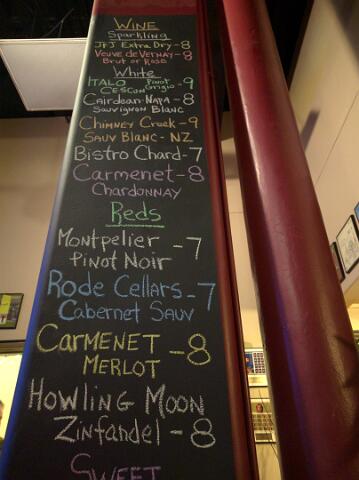 WINE
Sparkling
JFJ Extra Dry - 8
Veuve de Vernay - 8
Brut or Rosé
White
ITALO CESCON Pinot Grigio - 9
Cairdean - NAPA - 8
Sauvignon Blanc
Chimney Creek - 9
Sauv Blanc - NZ
Bistro Chard - 7
Carmenet - 8
Chardonnay
Reds
Montpelier - 7
Pinot Noir
Rode Cellars - 7
Cabernet Sauv
CARMENET - 8
MERLOT
Howling Moon
Zinfandel - 8
SWEET